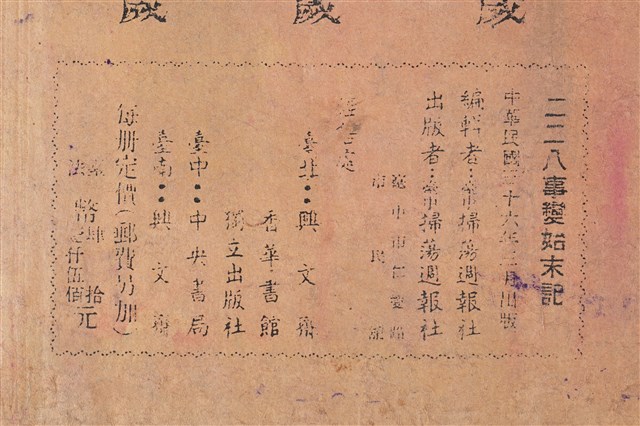 歲 歲 歲
二二八事變始末記
中華民國三十六年三月出版
編輯者：掃蕩週報社
出版者：掃蕩週報社
臺中市
市民館
經售處
臺北：興文齋
香華書館
獨立出版社
臺中：中央書局
臺南：興文齋
每册定價（郵費另加）
臺幣肆拾元
法幣壹仟伍佰元